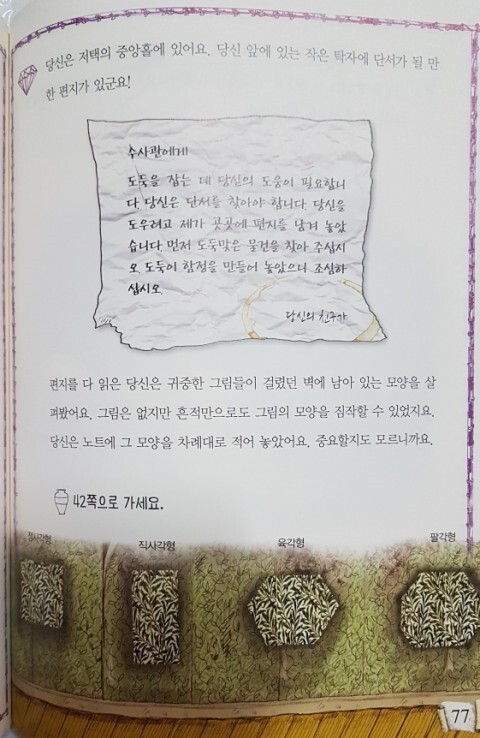 당신은 저택의 중앙홀에 있어요. 당신 앞에 있는 작은 탁자에 단서가 될 만
한 편지가 있군요!
수사관에게
도둑을 잡는 데 당신의 도움이 필요합니
다. 당신은 단서를 찾아야 합니다. 당신을
도우려고 제가 곳곳에 편지를 남겨 놓았
습니다. 먼저 도둑맞은 물건을 찾아 주십시
오. 도둑이 함정을 만들어 놓았으니 조심하
십시오.
당신의 친구가
편지를 다 읽은 당신은 귀중한 그림들이 걸렸던 벽에 남아 있는 모양을 살
펴봤어요. 그림은 없지만 흔적만으로도 그림의 모양을 짐작할 수 있었지요.
당신은 노트에 그 모양을 차례대로 적어 놓았어요. 중요할지도 모르니까요.
42쪽으로 가세요.
정사각형 직사각형 육각형 팔각형
77